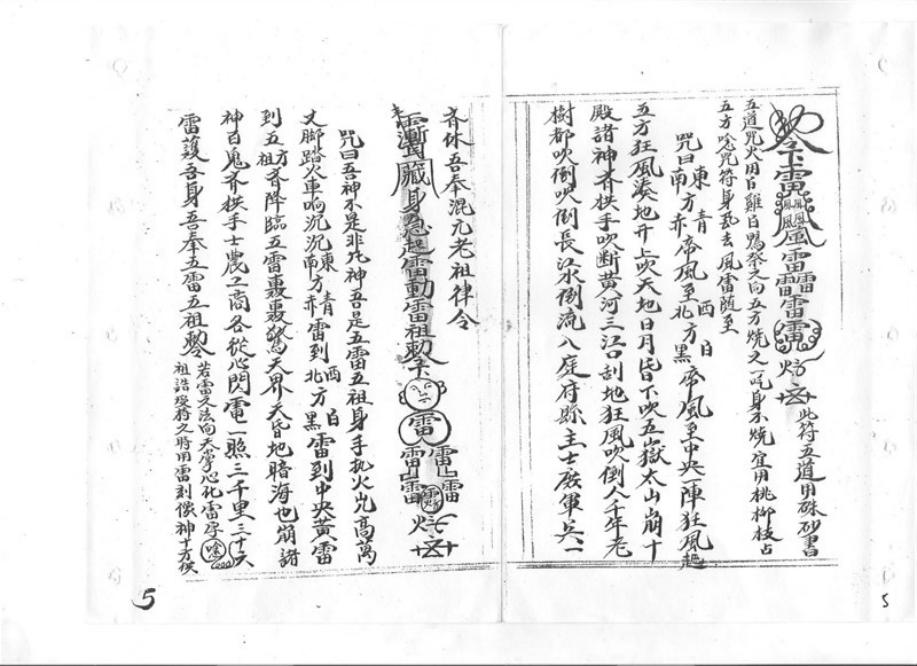 勅令下雷 雷雷雷雷 此符五道用硃砂書
五道咒火用白雞白鴨祭之向五方燒之一咒身不燒宜用桃柳枝占
五方唸咒符身 去風雷隨至
咒曰東方青帝風至西方白帝風至南方赤帝風至北方黑帝風至中央一陣狂風起
五方狂風湊地升上吹天地日月昏下吹五嶽太山崩十
殿諸神齐拱手吹斷黃河三江口刮地狂風吹倒八千年老
樹都吹倒吹倒長江水倒流八庭府縣主士廢軍兵一
齐休吾奉混元老祖律令
藏身急起雷動雷祖勅下 雷雷雷雷雷
咒曰吾神不是非凡神吾是五雷五祖身手執火 高萬
丈脚踏火車响沉沉東方青雷到西方白雷到南方赤雷到北方黑雷到中央黃雷
到五方五祖齐降臨五雷轟轟驚天界天昏地暗海也崩諸
神百鬼齐拱手士農工商各從心閃電一照三千里三十天
雷護吾身吾奉五雷五祖勅 若雷文法向天掌心 雷字
祖語 將之時用雷刻像神十方使
5
5